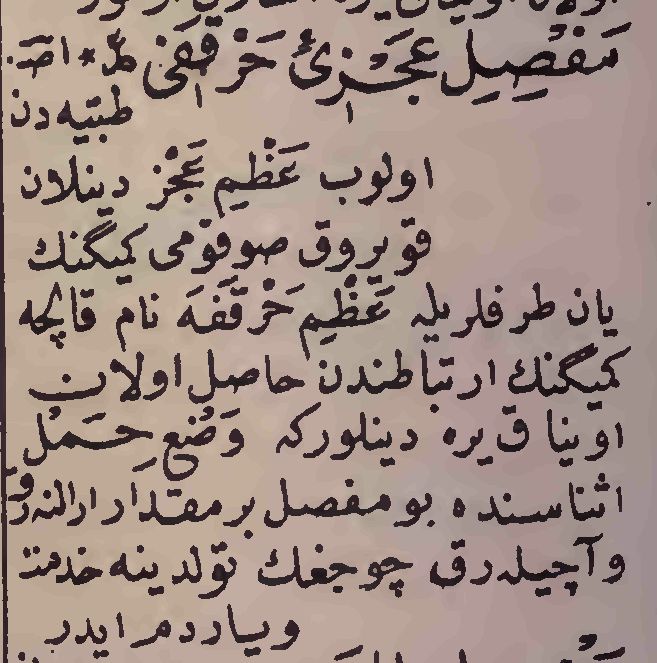 مَفْصِلِ عَجَزِئ حَرْقَفِى ط * اصـ
طبيه دن
اولوب عَظْيِم عَجْز دينلان
قويروق صوقومى كميگنك
يان طرفلريله عَظْيِم حَرْقَفَه نام قالچه
كميگنك ارتباطندن حاصل اولان
اوينا ق يره دينلوركه وَضْع حِمَل
اثناسنده بو مفصل بر مقدار ارالنه رق
وآچيله رق چوجغك تولدينه خدمت
وياردم ايدر